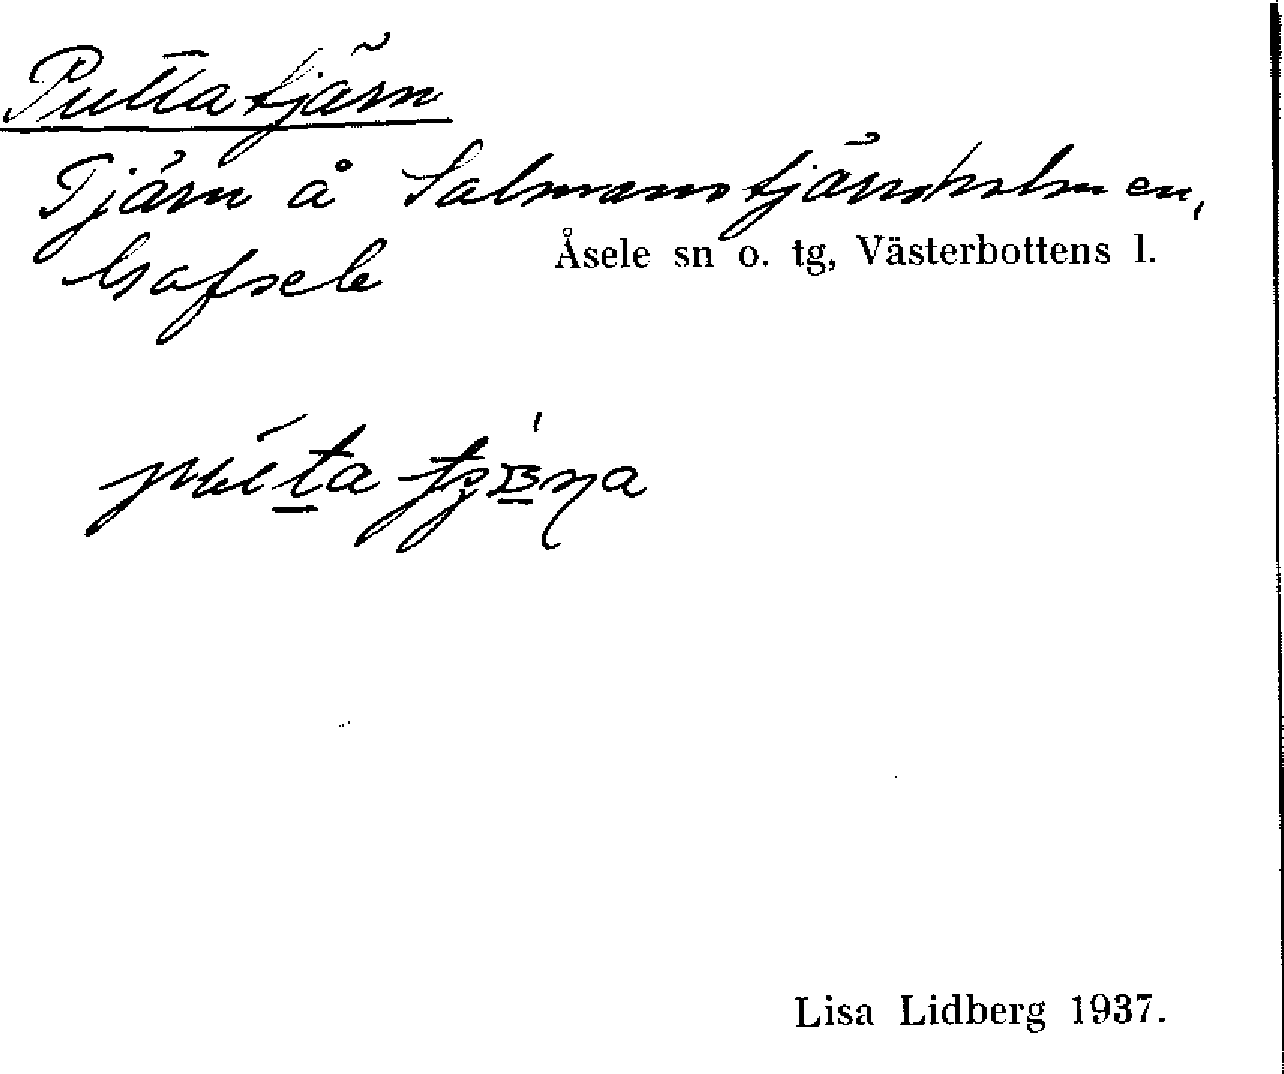 Puttatjärn
Tjärn å Salmanstjärnholmen,
Gafsele
Åsele sn o. tg, Västerbottens l.
Lisa Lidberg 1937.